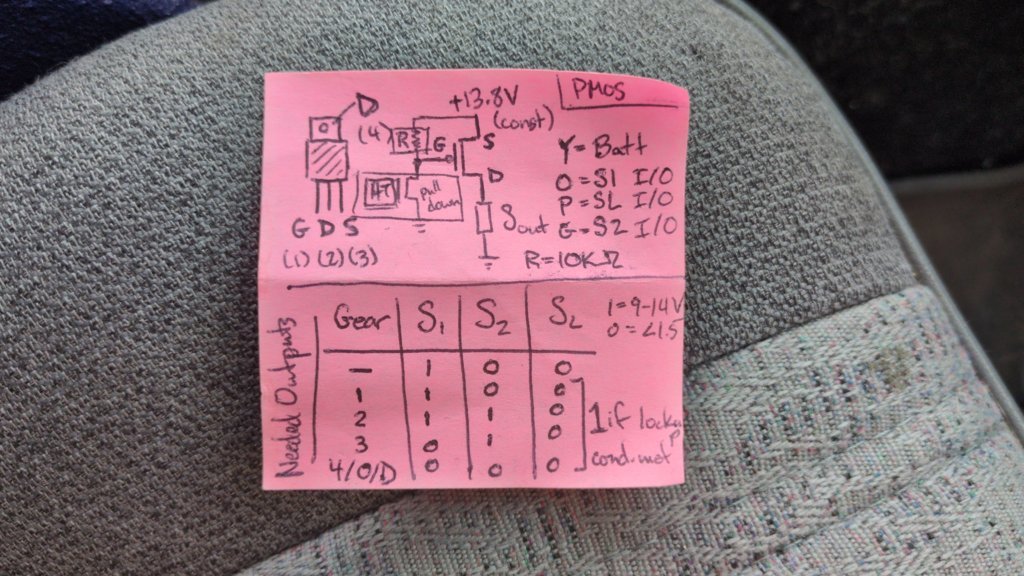 PMOS
D
+13.8V
(const)
(4)
R
G
S
D
pull
down
Sout
G D S
(1) (2) (3)
Y = Batt
O = S1 I/O
P = SL I/O
G = S2 I/O
R = 10KΩ
Needed Outputs
Gear S1 S2 SL
— 1 0 0
1 1 0 0
2 1 1 0
3 0 1 0
4/O/D 0 0 0
1 = 9-14V
0 = <1.5
1 if lockup
cond. met